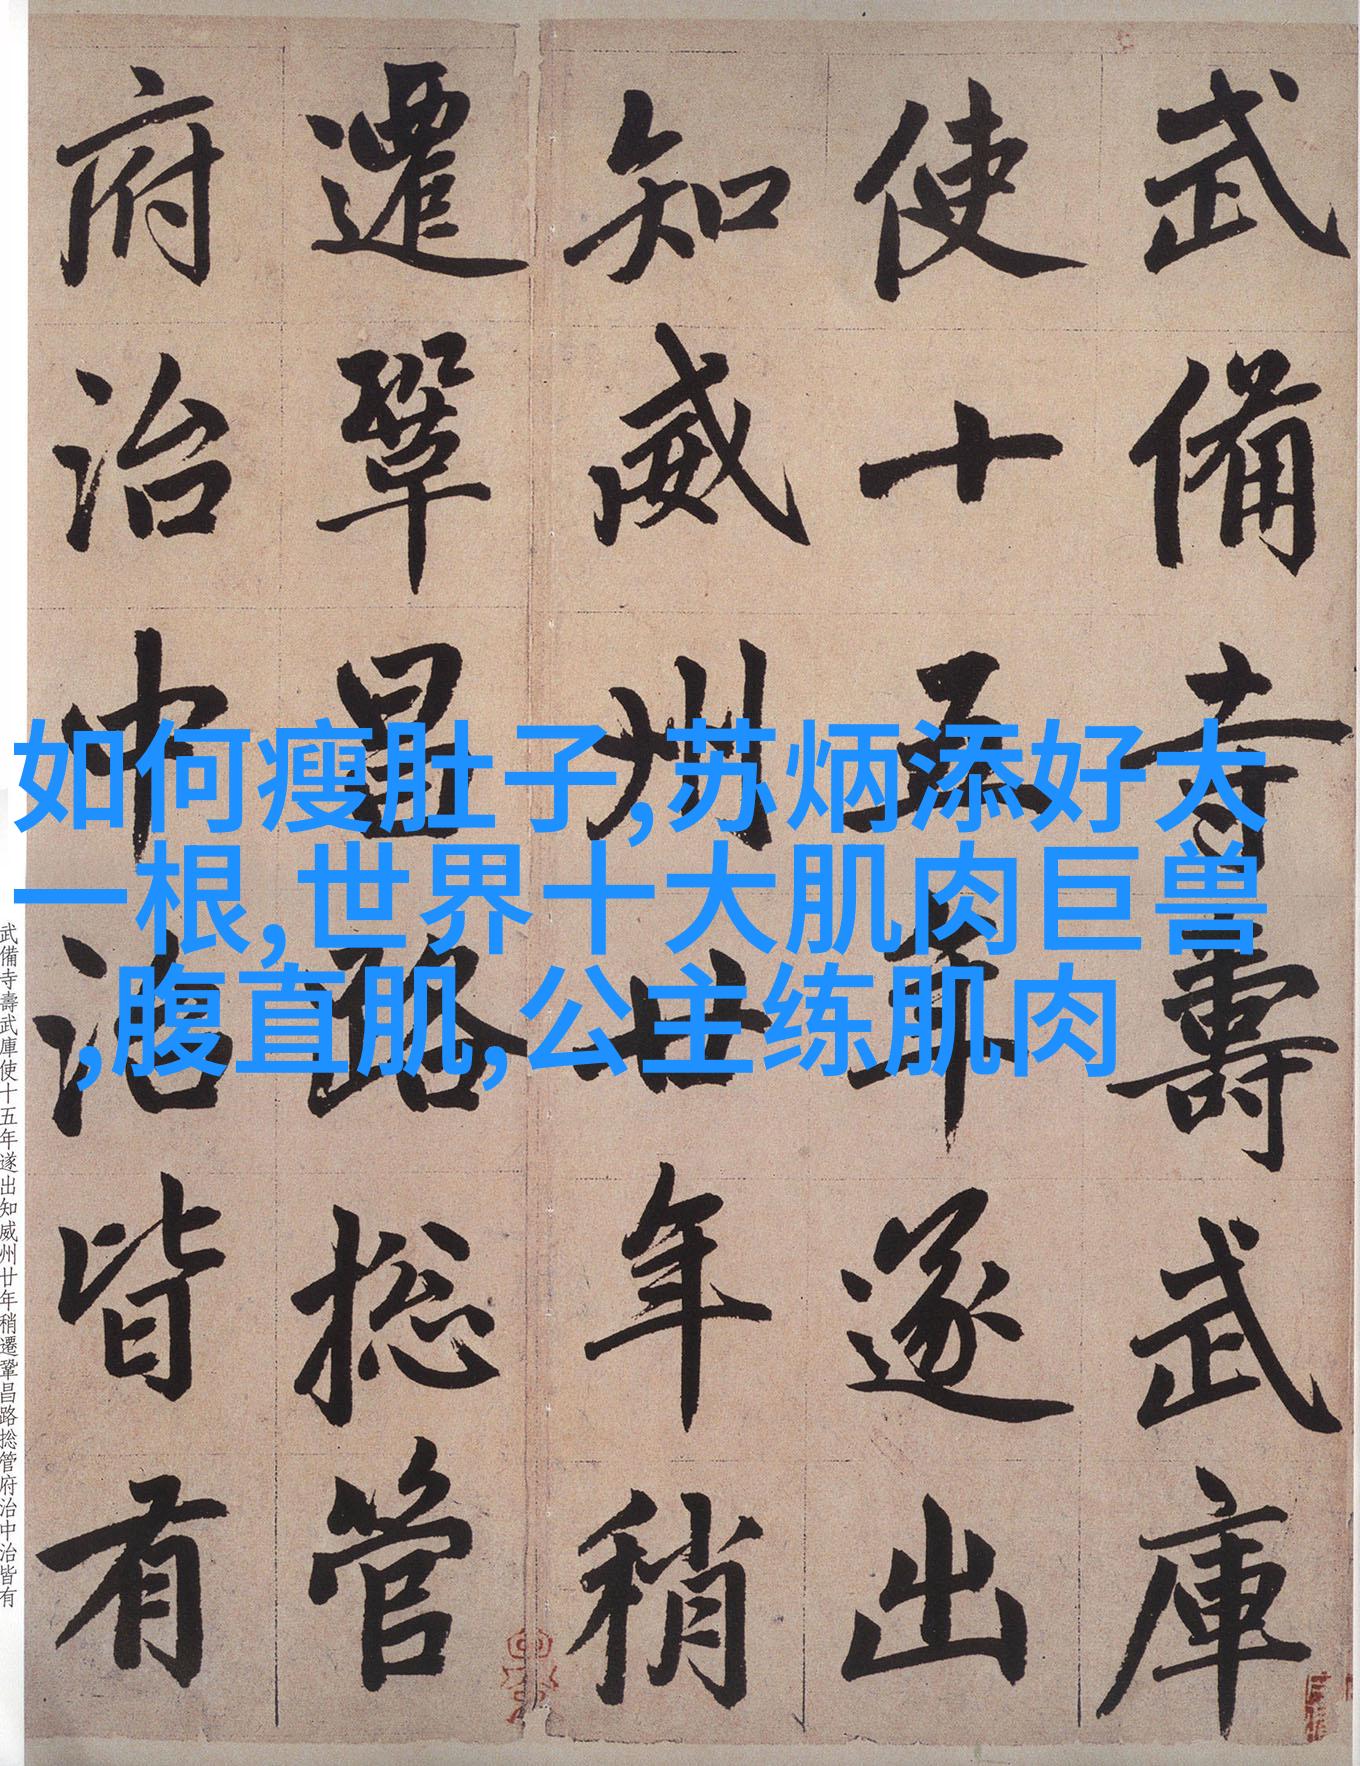 武備寺壽武庫
使十五年遂出
知威州廿年稍
遷鞏昌路捴管
府治中治皆有
如何瘦肚子,苏炳添好大
一根,世界十大肌肉巨兽
,腹直肌,公主练肌肉
武備寺壽武庫使十五年遂出知威州廿年稍遷鞏昌路捴管府治中治皆有